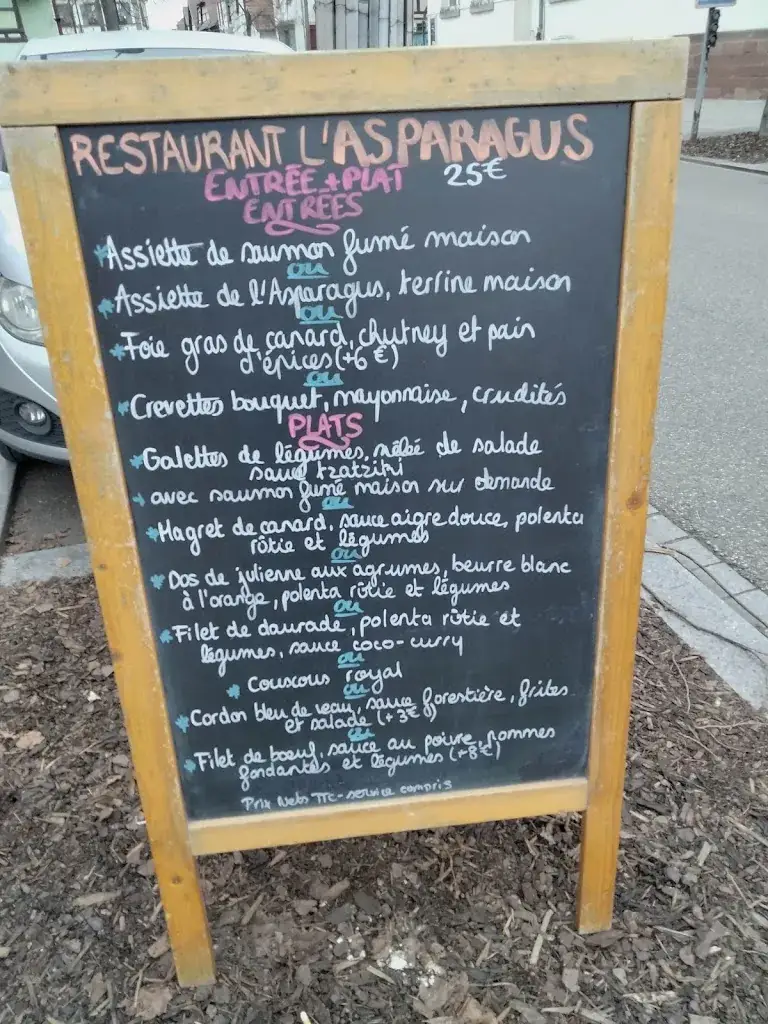 RESTAURANT L'ASPARAGUS
ENTRÉE+PLAT 25€
ENTRÉES
Assiette de saumon fumé maison
ou
Assiette de l'Asparagus, terrine maison
ou
Foie gras de canard, chutney et pain
d'épices (+6€)
ou
Crevettes bouquet, mayonnaise, crudités
PLATS
Galettes de légumes, mêlé de salade
sauce tzatziki
avec saumon fumé maison sur demande
ou
Magret de canard, sauce aigre douce, polenta
rôtie et légumes
ou
Dos de julienne aux agrumes, beurre blanc
à l'orange, polenta rôtie et légumes
ou
Filet de daurade, polenta rôtie et
légumes, sauce coco-curry
ou
Couscous royal
ou
Cordon bleu de veau, sauce forestière, frites
et salade (+3€)
ou
Filet de bœuf, sauce au poivre, pommes
fondantes et légumes (+8€)
Prix Nets TTC-service compris